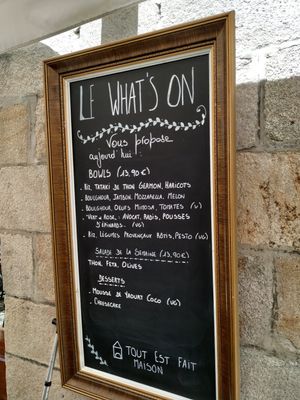 LE WHAT'S ON
Vous propose
aujourd'hui :
BOWLS (13,90 €)
- RIZ, TATAKI DE THON GERMON, HARICOTS
- BOULGHOUR, JAMBON, MOZZARELLA, MELON
- BOULGHOUR, OEUFS MIMOSA, TOMATES (VG)
- "VERT & ROSE", AVOCAT, RADIS, POUSSES
D'ÉPINARDS. (VG)
- RIZ, LÉGUMES PROVENÇAUX RÔTIS, PESTO (VG)
SALADE DE LA SEMAINE (13,90€)
THON, FETA, OLIVES
DESSERTS
- MOUSSE DE YAOURT COCO (VG)
- CHEESECAKE
TOUT EST FAIT
MAISON